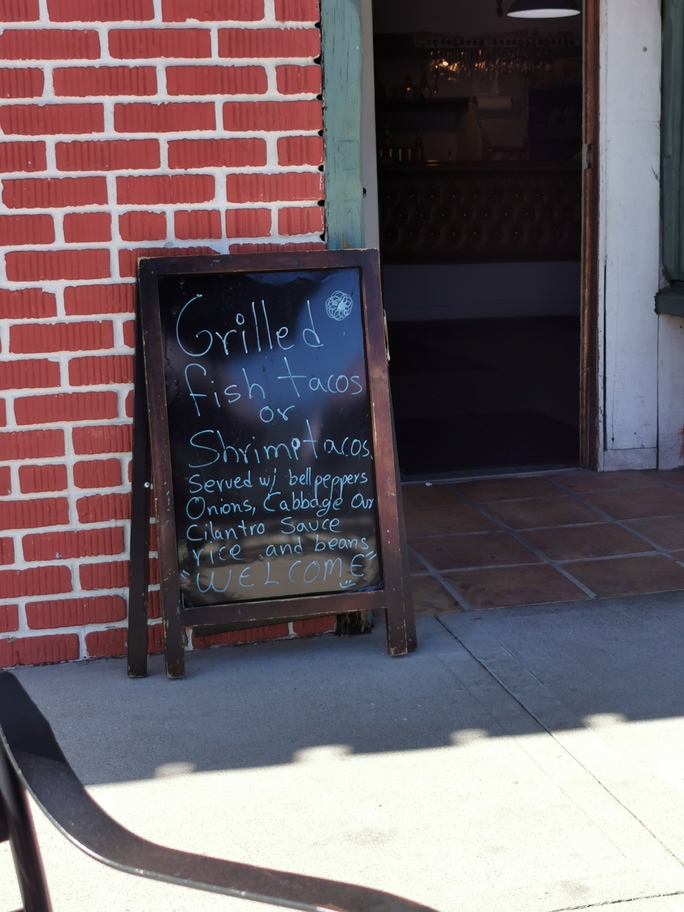 Grilled
fish tacos
or
Shrimp tacos.
Served w/ bell peppers
Onions, Cabbage Our
Cilantro Sauce
rice and beans
"WELCOME"